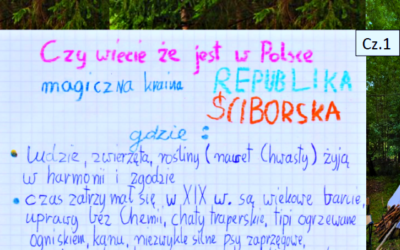 Czy wiecie że jest w Polsce
Cz.1
magiczna kraina REPUBLIKA
ŚCIBORSKA
gdzie :
• ludzie, zwierzęta, rośliny (nawet Chwasty) żyją
w harmonii i zgodzie
• czas zatrzymał się w XIX w. są wiekowe barcie,
uprawy bez Chemii, chaty traperskie, tipi ogrzewane
ogniskiem, kanu, niezwykle silne psy zaprzęgowe,